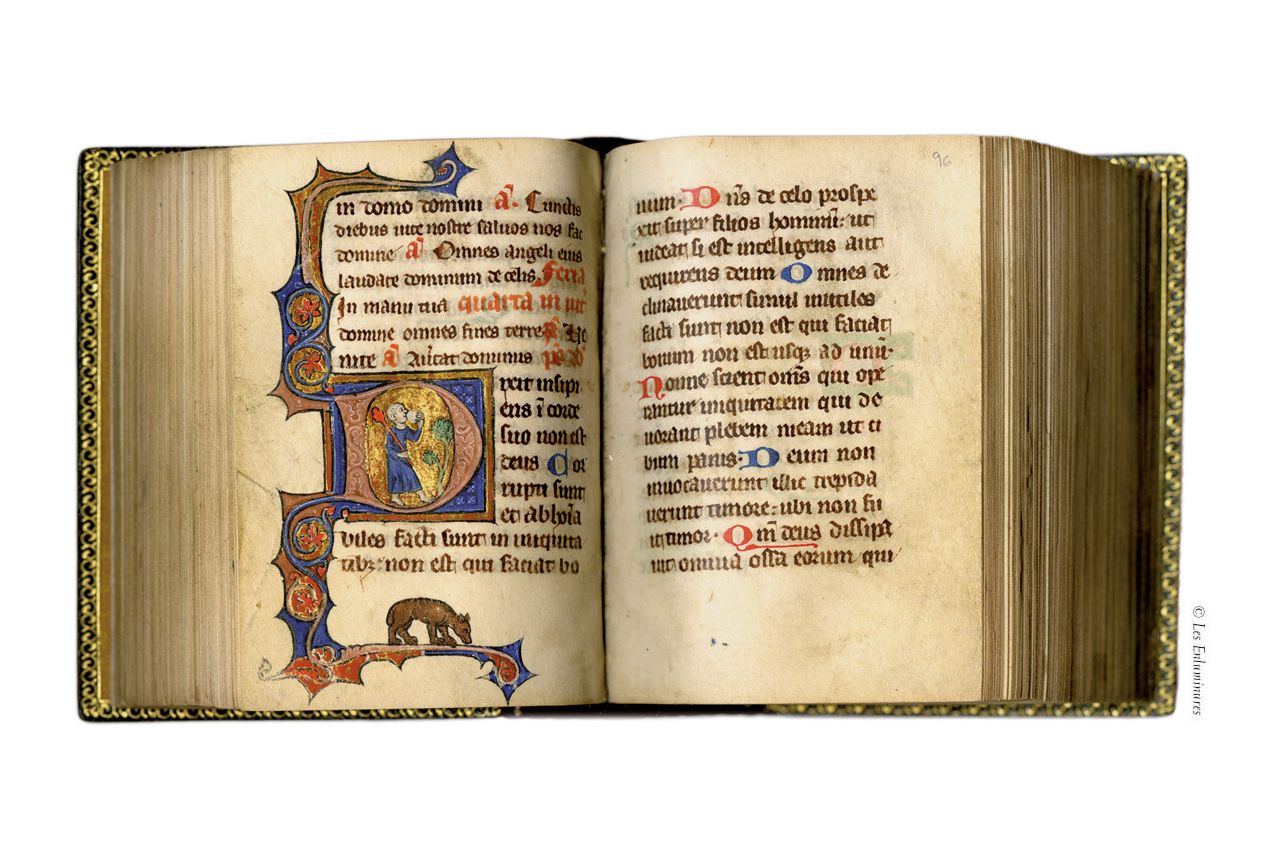 in domo domini a͞. Cunctis
diebus uite nostre saluos nos fac
domine a͞ Omnes angeli eius
laudate dominum de celis. Feria
In manu tua quarta in
domine omnes fines terre p͞s Ve
nite a͞ Auertat dominus
D ixit insipi
ens i͞ corde
suo non est
deus Cor
rupti sunt
et abho͞ia
biles facti sunt in iniquita
tibꝫ: non est qui faciat bo
96
num. D n͞s de celo prospe
xit super filios hominu͞: ut
uideat si est intelligens aut
requirens deum O mnes de
clinauerunt simul inutiles
facti sunt non est qui faciat
bonum non est usqꝫ ad unu͞.
Nonne scient om͞s qui ope
rantur iniquitatem qui de
uorant plebem meam ut ci
bum panis: D eum non
inuocauerunt illic trepida
uerunt timore: ubi non fu
it timor. Qm͞ deus dissipa
uit omnia ossa eorum qui
© Les Enluminures